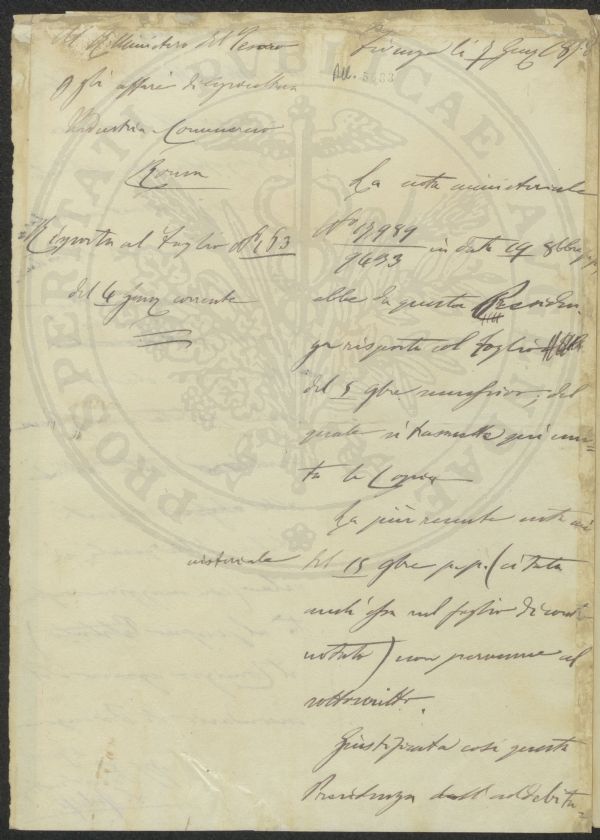 Al R. Ministero del Tesoro
p gli affari di Agricoltura
Industria e Commercio
Roma
Risposta al foglio N° 163
del 4 genn corrente
Firenze li 7 Genn 1878
All.
La nota ministeriale
N° 13989
9633
in data 19 8bre
ebbe da questa Presiden
za risposta col foglio
del 5 9bre successivo, del
quale si trasmette qui uni=
ta la Copia
La più recente nota mi
nisteriale
del 15 9bre p.p. (citata
anch'essa nel foglio di contro
notato) non pervenne al
sottoscritto.
Giustificata così questa
Presidenza dall'addebita=
PROSPERITATI PUBLICAE